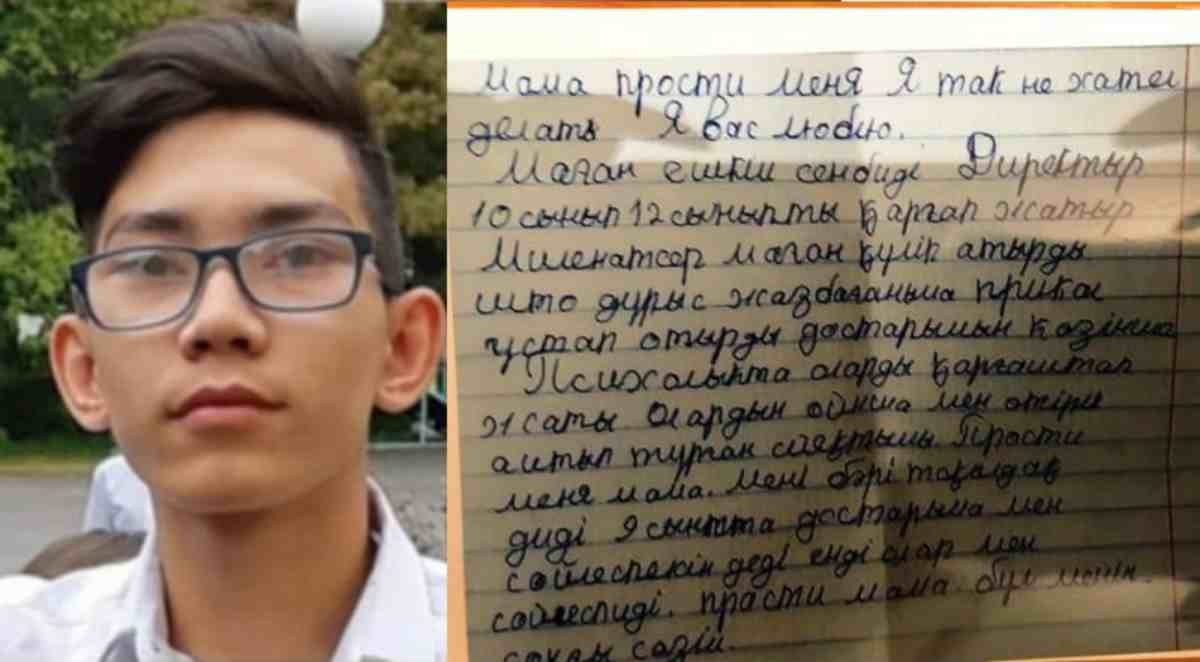 Мама прости меня Я так не хател
делать Я вас люблю.
Маған ешкім сенбиді Директыр
10 сынып 12 сыныпты қарғап жатыр
маған күліп атырды
што дұрыс жазбағаныма приказ
ұстап отырды достарымын көзінша
оларды
жаты Олардын ойнша мен өтірік
айтып тұрған сияқтымы. Прости
меня мама. Мені бәрі
диді 9 сыныпта достарыма мен
сөйлеспекін деді енді олар мен
сөйлеспиді. прасти мама. бұл менін
соңғы сөзім.